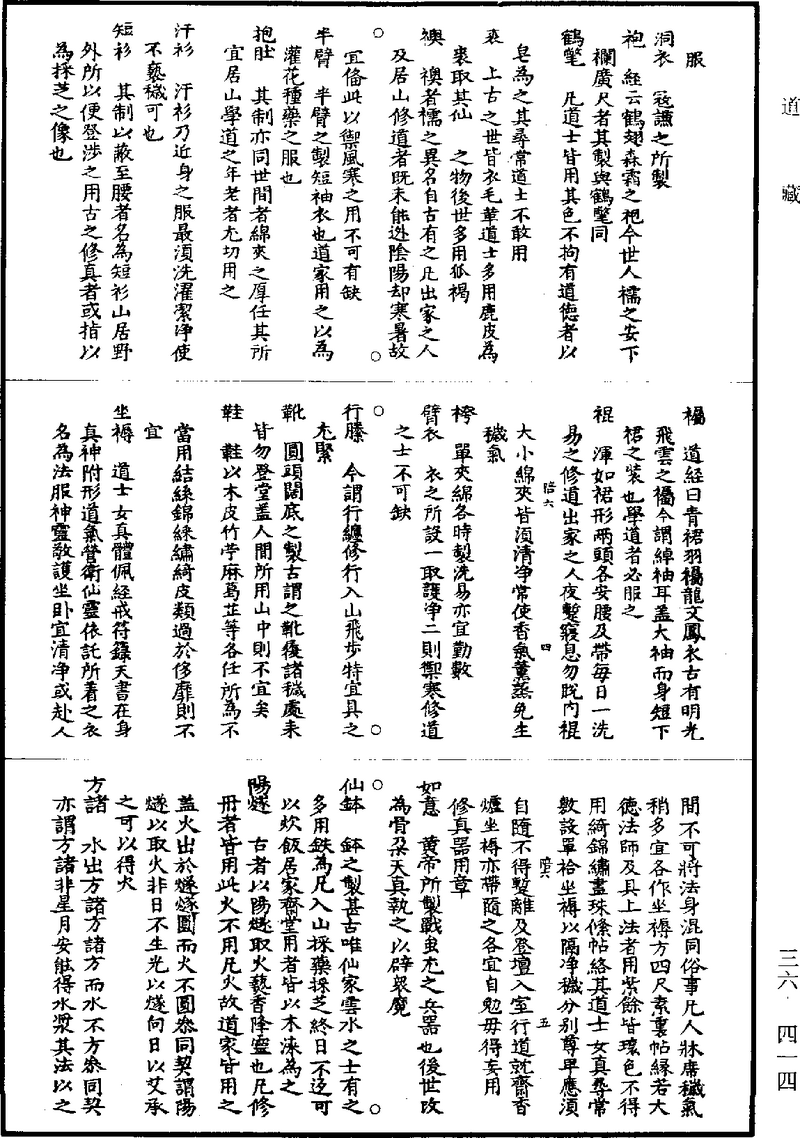 道藏
服
洞衣　寇謙之所製
袍　經云鶴翅森霜之袍今世人襦之安下
襴廣尺者其製與鶴氅同
鶴氅　凡道士皆用其色不拘有道德者以
皂為之其尋常道士不敢用
裘　上古之世皆衣毛革道士多用鹿皮為
裘取其仙　之物後世多用狐褐
襖　襖者襦之異名自古有之凡出家之人
及居山修道者既未能逃陰陽却寒暑故
宜俻此以禦風寒之用不可有缺
半臂　半臂之製短袖衣也道家用之以為
灌花種藥之服也
抱肚　其制亦同世間者綿夾之厚任其所
宜居山學道之年老者尤切用之
汗衫　汗衫乃近身之服最須洗濯潔淨使
不褻穢可也
短衫　其制以蔽至腰者名為短衫山居野
外所以便登涉之用古之修真者或指以
為採芝之像也
襡　道經曰青裙羽襡龍文鳳衣古有明光
飛雲之襡今謂綽袖耳盖大袖而身短下
裙之裝也學道者必服之
裩　渾如裙形两頭各安腰及帶每日一洗
易之修道出家之人夜暫寢息勿脫内裩
大小綿夾皆須清净常使香氣薰蒸免生
穢氣
袴　單夾綿各時製洗易亦宜勤數
臂衣　衣之所設一取護净二則禦寒修道
之士不可缺
行縢　今謂行纏修行入山飛步特宜具之
尤緊
靴　圓頭闊底之製古謂之靴履諸穢處来
皆勿登堂盖人間所用山中則不宜矣
鞋　鞋以木皮竹苧麻葛芷等各任所為不
當用結絲錦綵繡綺皮類過於侈靡則不
宜
坐褥　道士女真體佩經戒符籙天書在身
真神附形道氣營衛仙靈依託所著之衣
名為法服神靈敬護坐卧宜清净或赴人
陪六　四
間不可將法身混同俗事凡人牀席穢氣
稍多宜各作坐褥方四尺素裏帖緣若大
德法師及具上法者用紫餘皆壞色不得
用綺錦繡畫珠絛帖絡其道士女真尋常
數設單袷坐褥以隔净穢分别尊卑應須
自隨不得暫離及登壇入室行道就齋香
爐坐褥亦帶隨之各宜自勉毋得妄用
修真器用章
如意　黄帝所製戰蚩尤之兵器也後世改
為骨朶天真執之以辟衆魔
仙鉢　鉢之製甚古唯仙家雲水之士有之
多用鉄為凡入山採藥採芝終日不返可
以炊飯居家齋堂用者皆以木漆為之
陽燧　古者以陽燧取火藝香降靈也凡修
丹者皆用此火不用凡火故道家皆用之
盖火出於燧燧圓而火不圓叅同契謂陽
燧以取火非日不生光以燧向日以艾承
之可以得火
方諸　水出方諸方諸方而水不方叅同契
亦謂方諸非星月安能得水漿其法以之
陪六　五
三六·四一四